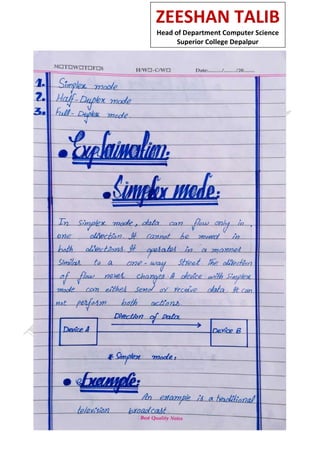 ZEESHAN TALIB
Head of Department Computer Science
Superior College Depalpur
M□T□W□T□F□S H/W□-C/W□ Date......./......./20.......
1. Simplex mode
2. Half-Duplex mode
3. Full-Duplex mode.
• Explaination:
• Simplex mode:
In simplex mode, data can flow only in
one direction. It cannot be moved in
both directions. It operates in a manner
similar to a one-way street. The direction
of flow never changes. A device with simplex
mode can either send or receive data. It can
not perform both actions.
Direction of Data
Device A Device B
* Simplex mode:
• Example:
An example is a traditional
television broadcast
Best Quality Notes